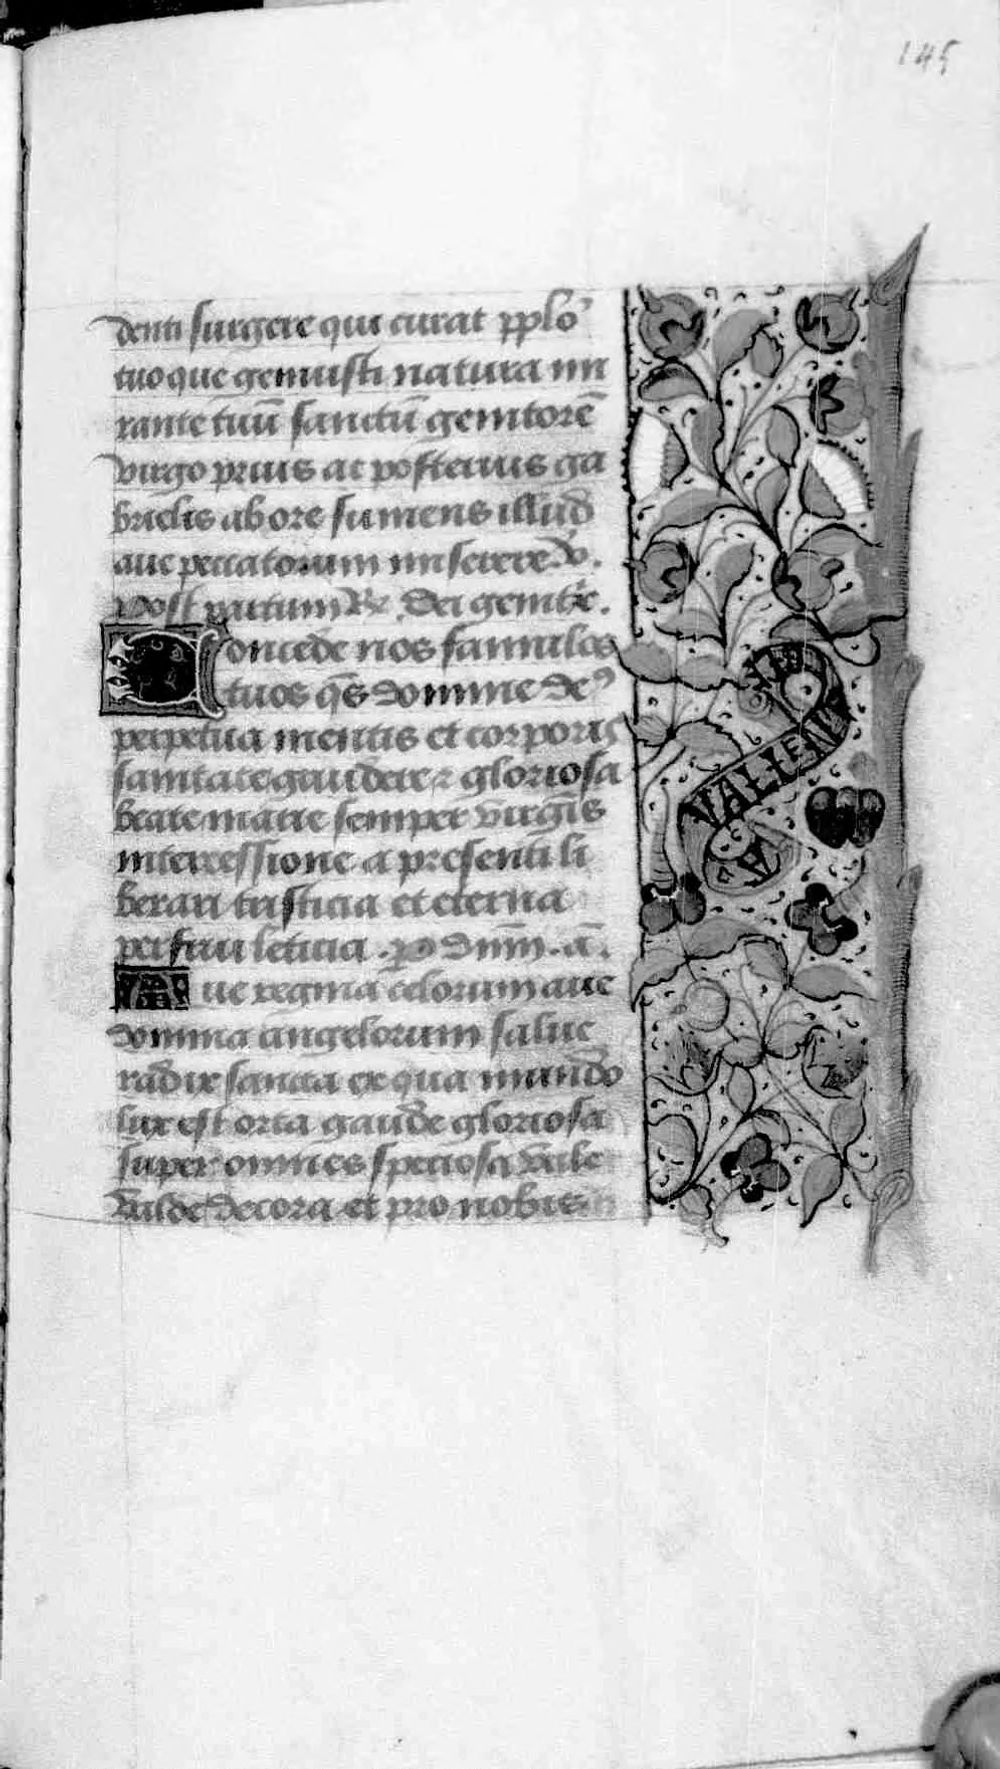 145
denti surgere qui curat pplō
tuo que genuisti natura mi
rante tuū sanctū genitorē
virgo prius ac posterius ga
brielis ab ore sumens illud
aue peccatorum miserere. v̄.
Post partum ℟. Dei genit̄x.
Concede nos famulos
tuos qs̄ domine deꝰ
perpetua mentis et corporis
sanitate gaudere ⁊ gloriosa
beate marie semper virgīs
intercessione a presenti li
berari tristicia et eterna
perfrui leticia. p dn̄m. a͞.
Aue regina celorum aue
domina angelorum salue
radix sancta ex qua mundo
lux est orta gaude gloriosa
super omnes speciosa vale
valde decora et pro nobis
VALIE
A